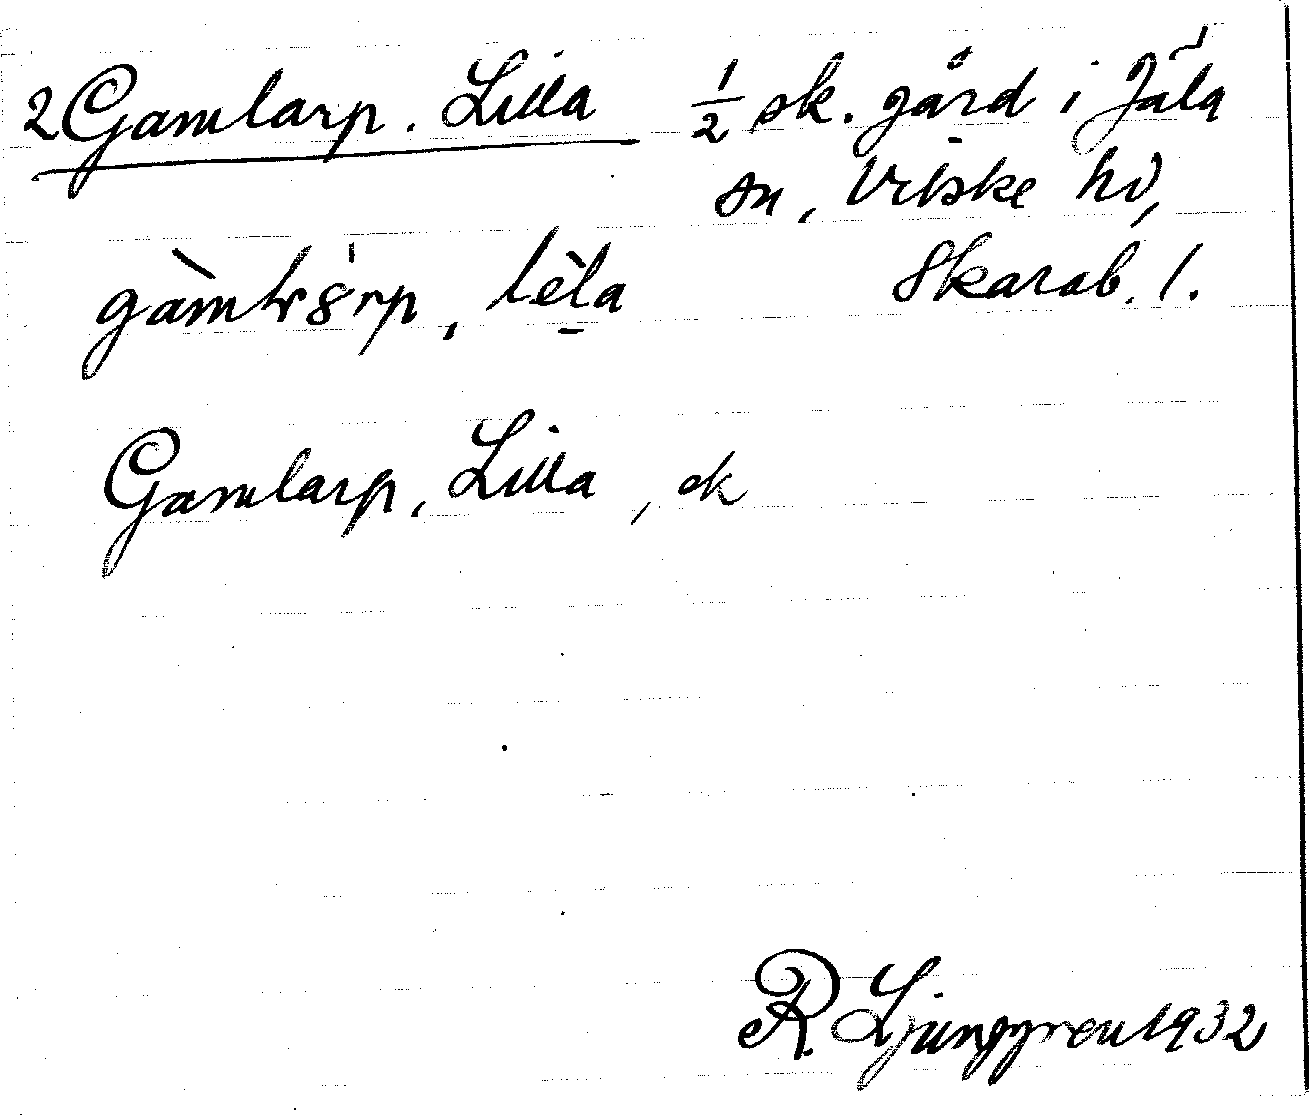 2 Gamlarp. Lilla ½ sk. gård i Jäla
sn, Vilske hd,
Skarab. l.
Gamlarp, Lilla, ek
R. Ljunggren 1932